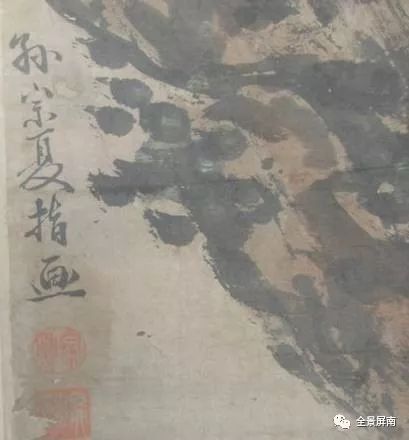 孙宗夏指画
全景屏南